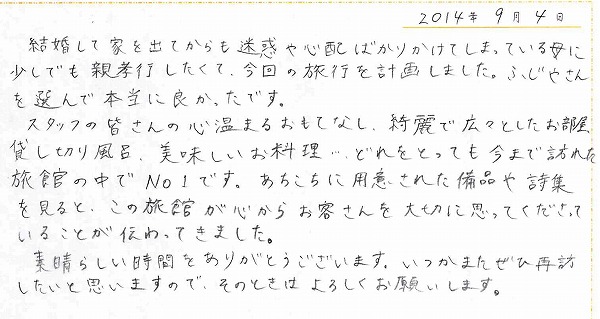 2014年 9月 4日
結婚して家を出てからも迷惑や心配ばかりかけてしまっている母に
少しでも親孝行したくて、今回の旅行を計画しました。ふじやさん
を選んで本当に良かったです。
スタッフの皆さんの心温まるおもてなし、綺麗で広々としたお部屋
貸し切り風呂、美味しいお料理…どれをとっても今まで訪れた
旅館の中でNo1です。あちこちに用意された備品や詩集
を見ると、この旅館が心からお客さんを大切に思ってくださって
いることが伝わってきました。
素晴らしい時間をありがとうございます。いつかまたぜひ再訪
したいと思いますので、そのときはよろしくお願いします。